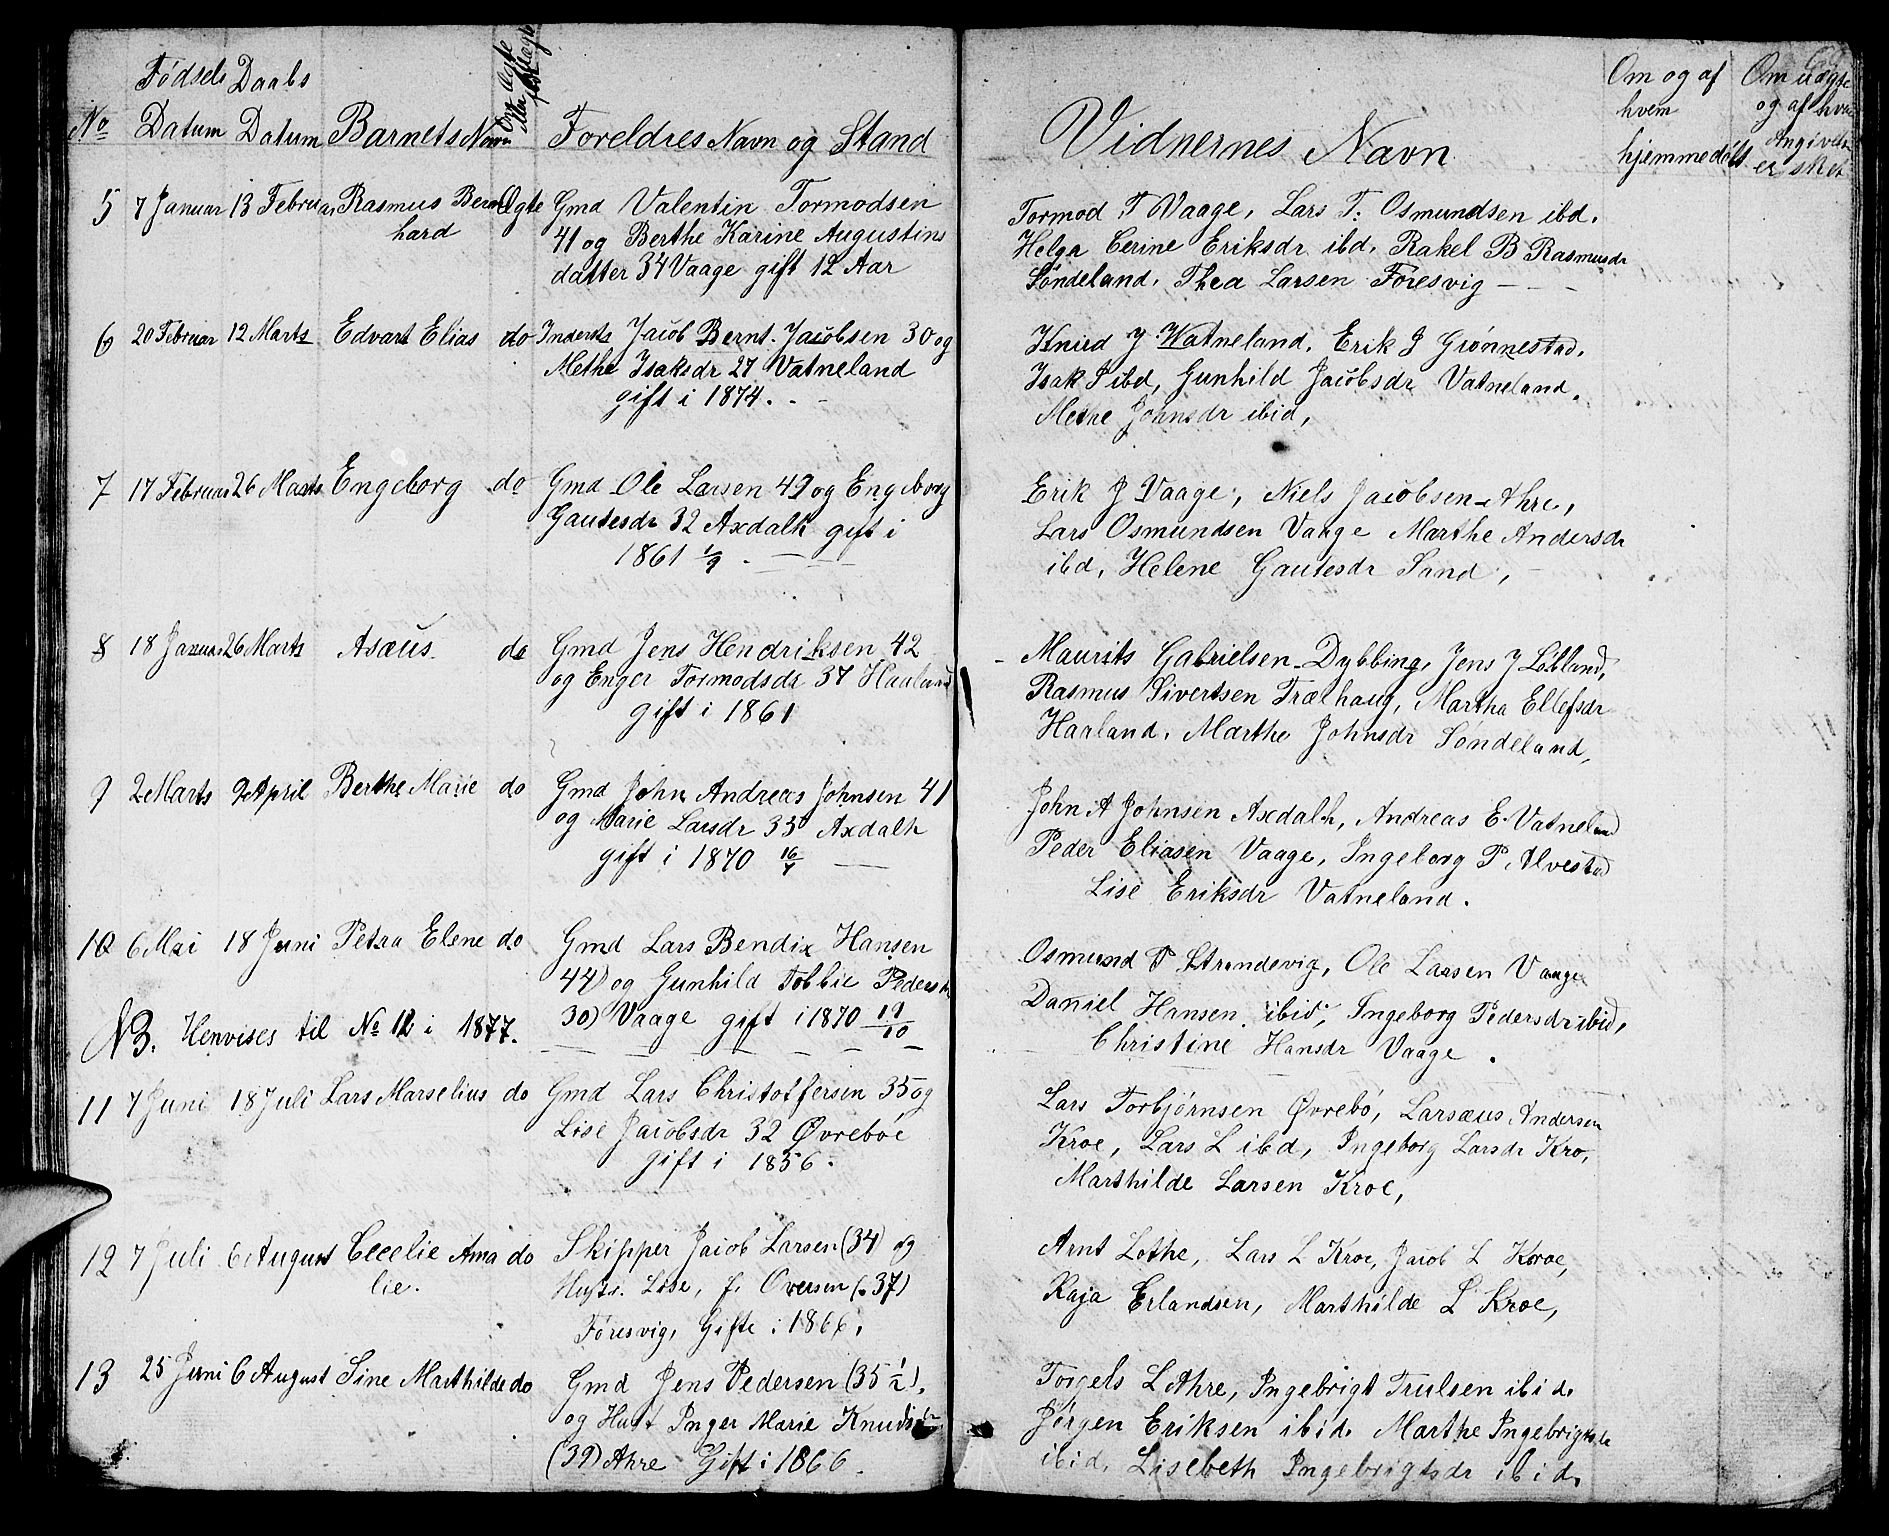 No
Fødsels Datum
Daabs Datum
Barnets Navn
Om Ægte eller
Foreldres Navn og Stand
5 7 Januar 13 Februar Rasmus Bern Ægte Gmd Valentin Tormodsen
hard 41 og Berthe Karine Augustins
datter 34 Vaage gift 12 Aar
6 20 Februar 12 Marts Edvart Elias do Inderst Jacob Bernt. Jacobsen 30 og
Methe Isaksdr 27 Vatneland
gift i 1874.
7 17 Februar 26 Marts Engeborg do Gmd Ole Larsen 49 og Engeborg
Gautesdr 32 Axdalh gift i
1861 1/9.
8 18 Januar 26 Marts Asæus. do Gmd Jens Hendriksen 42
og Enger Tormodsdr 37 Haaland
gift i 1861
9 2 Marts 9 April Berthe Marie do Gmd John Andreas Johnsen 41
og Marie Larsdr 35 Axdalh
gift i 1870 16/7
10 6 Mai 18 Juni Petra Elene do Gmd Lars Bendix Hansen
44) og Gunhild Tobbie Pedersdr
30) Vaage gift i 1870 19/10
NB. Henvises til No 12 i 1877.
11 7 Juni 18 Juli Lars Marselius do Gmd Lars Christoffersen 35 og
Lise Jacobsdr 32 Øvreböe
gift i 1856.
12 7 Juli 6 August Cecelie Ama do Skipper Jacob Larsen (34) og
lie. Hustr. Lise, f. Oversen (37)
Föresvig, Gifte i 1866.
13 25 Juni 6 August Sine Marthilde do Gmd Jens Pedersen (35 1/2).
og Hust Inger Marie Knudsdr
(39) Ahre Gift i 1866.
Vidnernes Navn
Om og af
hvem
hjemmedøbt
Om uægte
og af hvem
Angivelse
er skeet
Tormod T Vaage, Lars T. Osmundsen ibd.
Helga Cerine Eriksdr ibd. Rakel B Rasmusdr
Söndeland. Thea Larsen Föresvig
Knud J Watneland. Erik J Grönnestad.
Isak J ibd, Gunhild Jacobsdr Vatneland.
Methe Johnsdr ibid,
Erik J Vaage, Niels Jacobsen Ahre,
Lars Osmundsen Vaage Marthe Andersdr
ibd, Helene Gautesdr Sand,
Maurits Gabrielsen Dybbing, Jens J
Rasmus Sivertsen Trælhaug, Martha Ellefsdr
Haaland. Marthe Johnsdr Söndeland,
John A Johnsen Axdalh, Andreas E. Vatneland
Peder Eliasen Vaage, Ingeborg P. Alvestad
Lise Eriksdr Vatneland.
Osmund T Strandevig, Ole Larsen Vaage
Daniel Hansen ibid, Ingeborg Pedersdr ibid,
Christine Hansdr Vaage.
Lars Torbjörnsen Øvrebö, Larsæus Andersen
Kroe, Lars L ibd, Ingeborg Larsdr Kro,
Marthilde Larsen Kroe,
Arnt Lothe, Lars L Kroe, Jacob L Kroe,
Kaja Erlandsen, Marthilde L Kroe,
Torgels L Ahre, Ingebrigt Trulsen ibid.
Jörgen Eriksen ibid. Marthe Ingebrigtsdr
ibid. Lisebeth Ingebrigtsdr ibid.